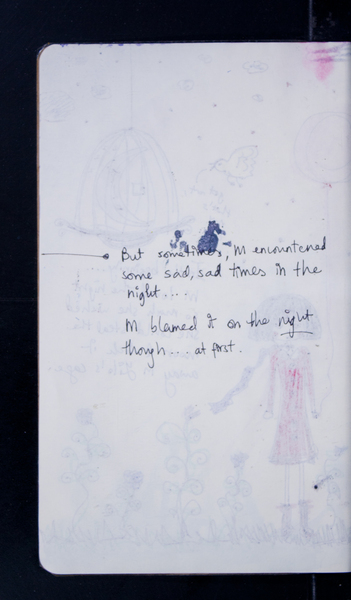 But sometimes, M encountered
some sad, sad times in the
night...
M blamed it on the night
though.... at first.